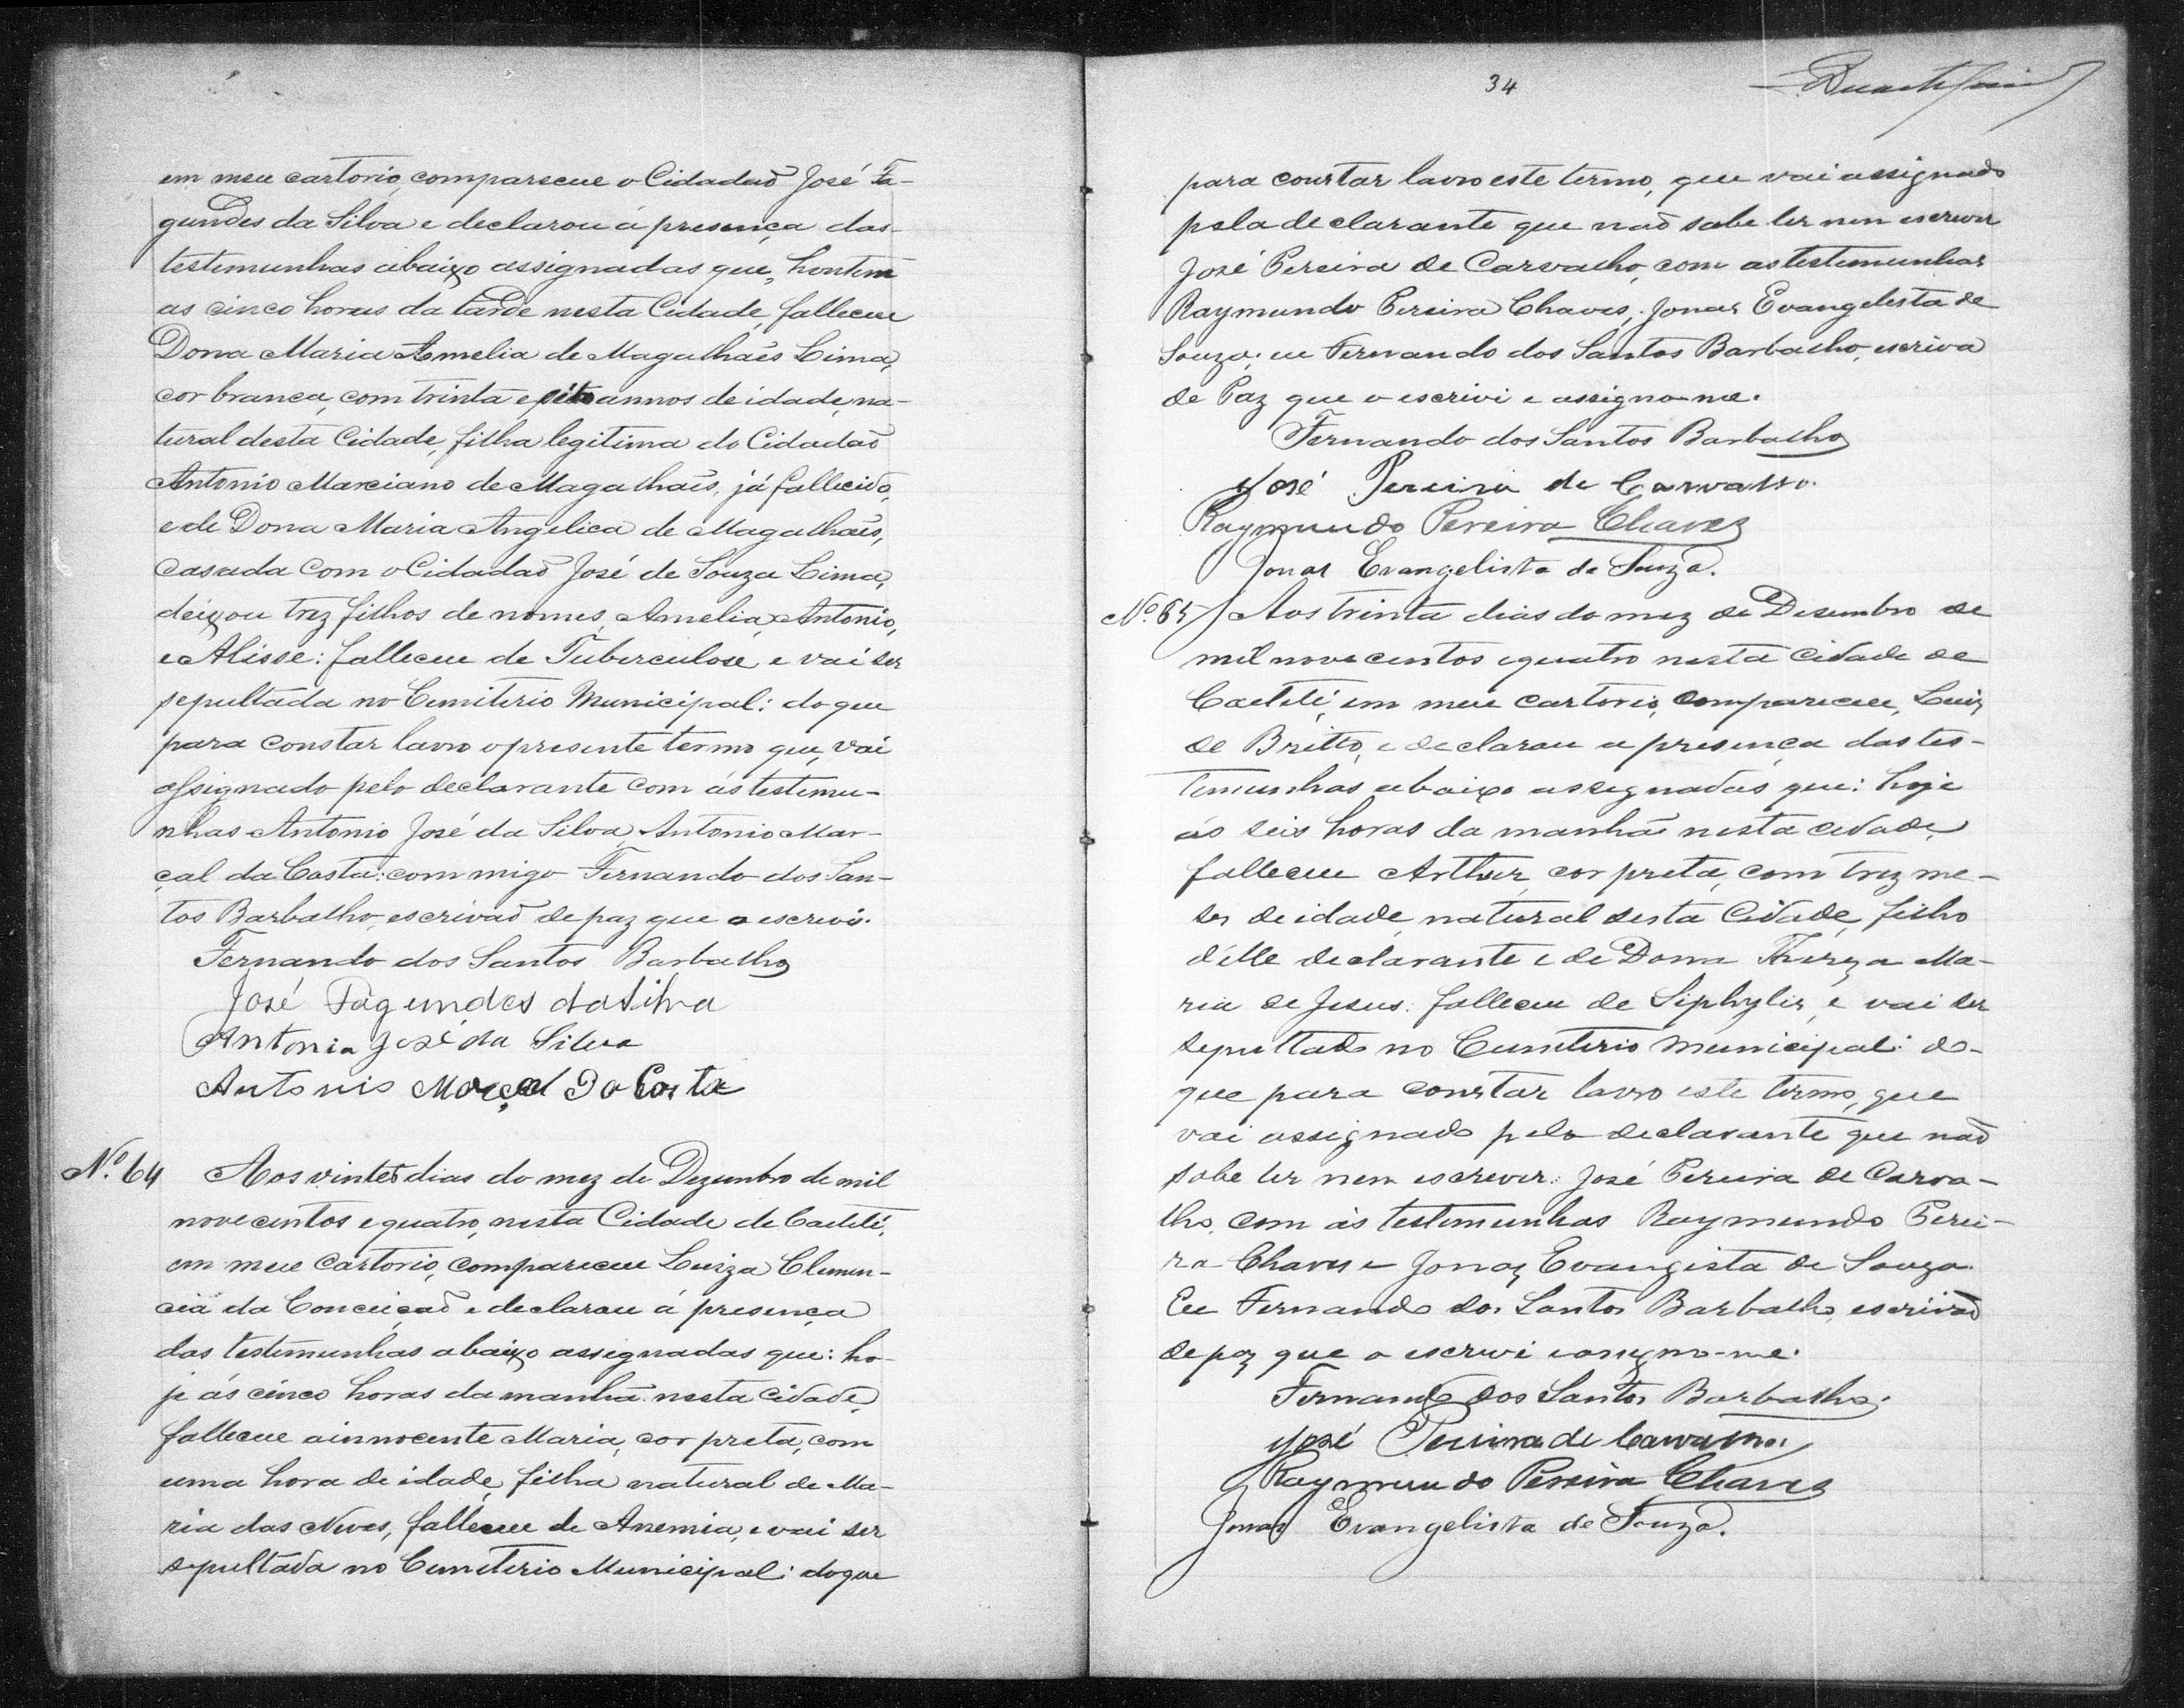 em meu cartorio, compareceu o Cidadaõ José Fa-
gundes da Silva e declarou á presença das
testemunhas abaixo assignadas que, hontem
as cinco horas da tarde nesta Cidade, falleceu
Dona Maria Amelia de Magalhaẽs Lima,
cor branca, com trinta e oito annos de idade, na-
tural desta Cidade, filha legitima do Cidadaõ
Antonio Marciano de Magalhaẽs, já fallecido,
e de Dona Maria Angelica de Magalhaẽs,
Casada com o Cidadaõ José de Souza Lima,
deixou trez filhos de nomes, Amelia, Antonio,
e Alisse: falleceu de Tuberculose e vai ser
sepultada no Cemiterio Municipal: do que
para constar lavro o presente termo que, vai
assignado pelo declarante com ás testemu-
nhas Antonio José da Silva, Antonio Mar-
çal da Costa: commigo Fernando dos San-
tos Barbalho, escrivaõ de paz que o escrevi.
Fernando dos Santos Barbalho
José Fagundes da Silva
Antonio José da Silva
Antonio Marçal Da Costa
Nº. 64 Aos vinte dias do mez de Dezembro de mil
novecentos e quatro, nesta Cidade de Caeteté,
em meu Cartorio, compareceu Luiza Clemen-
cia da Conceiçaõ e declarou á presença
das testemunhas abaixo assignadas que: ho-
je ás cinco horas da manhã nesta Cidade,
falleceu a innocente Maria, cor preta, com
uma hora de idade, filha natural de Ma-
ria das Neves, falleceu de Anemia, e vai ser
sepultada no Cemiterio Municipal: do que
34
para constar lavro este termo, que vai assignado
pela declarante que naõ sabe ler nem escrever
José Pereira de Carvalho, com as testemunhas
Raymundo Pereira Chaves, Jonas Evangelista de
Souza; eu Fernando dos Santos Barbalho, escriva
de Paz que o escrivi e assigno-me.
Fernando dos Santos Barbalho
José Pereira de Carvalho.
Raymundo Pereira Chaves
Jonas Evangelista de Souza.
Nº. 65 Aos trinta dias do mez de Desembro de
mil novecentos e quatro nesta Cidade de
Caeteté, em meu cartorio, compareceu, Luiz
de Britto, e declarou a presença das tes-
temunhas abaixo assignadas que: hoje
ás seis horas da manhã nesta cidade,
falleceu Arthur, cor preta, com trez me-
ses de idade, natural desta Cidade, filho
d'elle declarante e de Dona Thereza Ma-
ria de Jesus: falleceu de Siphylis, e vai ser
sepultado no Cemiterio Municipal: do-
que para constar lavro este termo, que
vai assignado pelo declarante que naõ
sabe ler nem escrever: José Pereira de Carva-
lho, com ás testemunhas Raymundo Perei-
ra Chaves e Jonas Evangista de Souza.
Eu Fernando dos Santos Barbalho, escrivaõ
de paz que o escrevi e assigno-me.
Fernando dos Santos Barbalho.
José Pereira de Carvalho.
Raymundo Pereira Chaves
Jonas Evangelista de Souza.